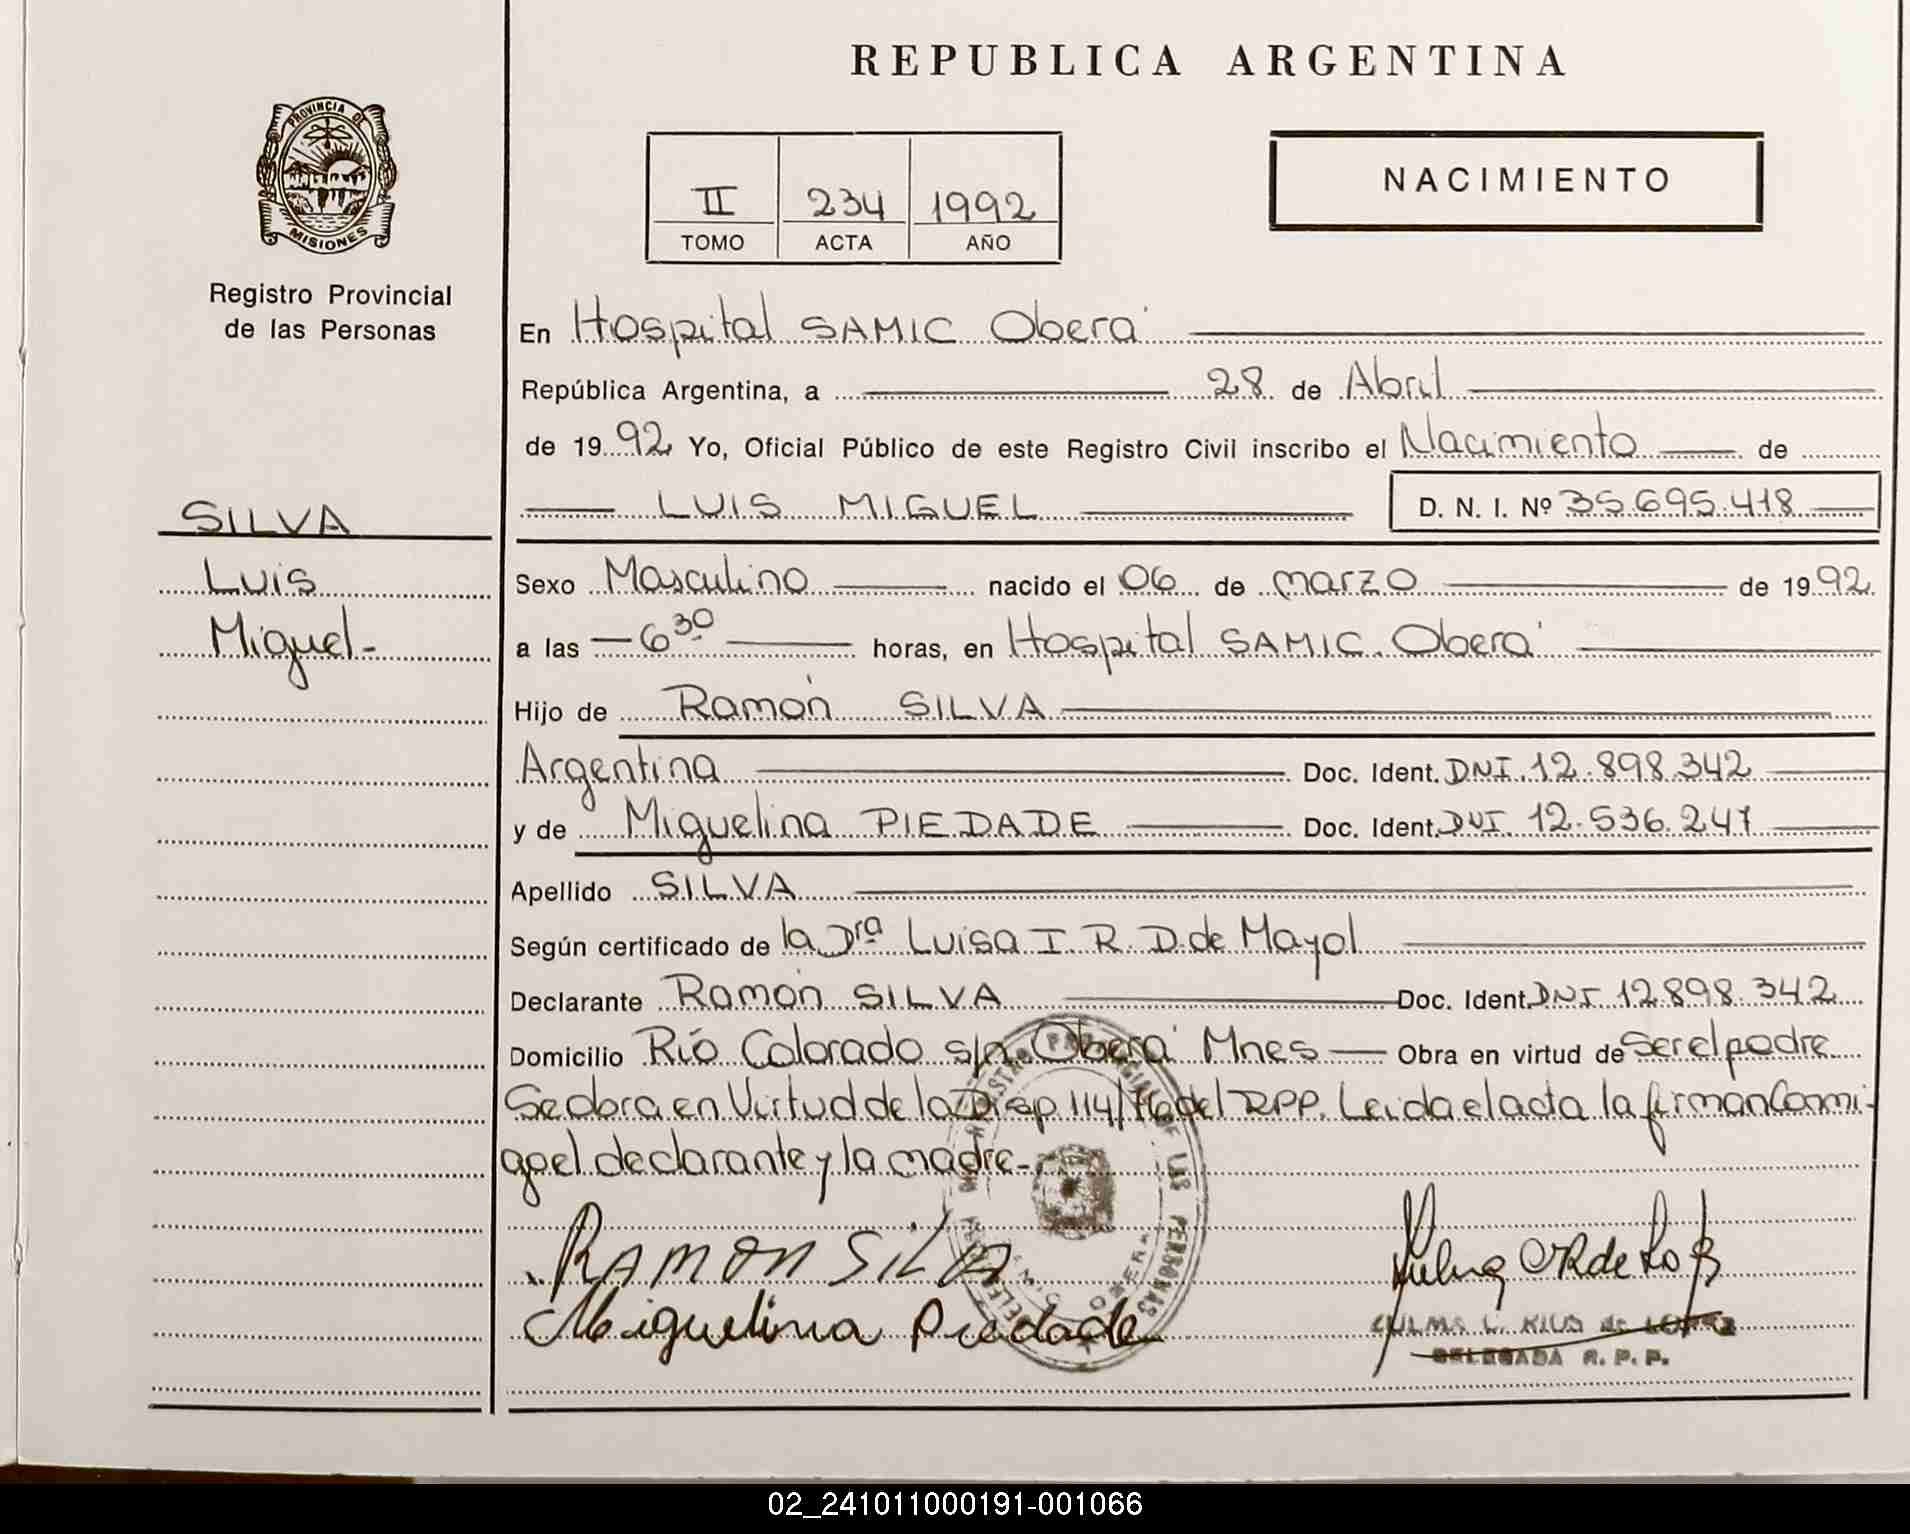 REPUBLICA ARGENTINA
PROVINCIA DE
MISIONES
Registro Provincial
de las Personas
II 234 1992
TOMO ACTA AÑO
NACIMIENTO
En Hospital SAMIC Oberá
República Argentina, a 28 de Abril
de 1992 Yo, Oficial Público de este Registro Civil inscribo el Nacimiento de
LUIS MIGUEL D. N. I. Nº 35.695.418
SILVA
Luis
Miguel-
Sexo Masculino nacido el 06 de marzo de 1992
a las 6 30 horas, en Hospital SAMIC. Oberá
Hijo de Ramón SILVA
Argentina Doc. Ident. DNI. 12.898.342
y de Miguelina PIEDADE Doc. Ident. DNI. 12.536.247
Apellido SILVA
Según certificado de la Dra Luisa I. R. D. de Mayol
Declarante Ramón SILVA Doc. Ident. DNI 12.898.342
Domicilio Río Colorado s/n. Oberá Mnes Obra en virtud de Ser el padre
Se obra en Virtud de la Disp 114/76 del RPP. Leida el acta la firman Conmi-
go el declarante y la madre-
RAMON SILVA
Miguelina Piedade
ZULMA C. RIOS de LOPEZ
DELEGADA R. P. P.
02_241011000191-001066